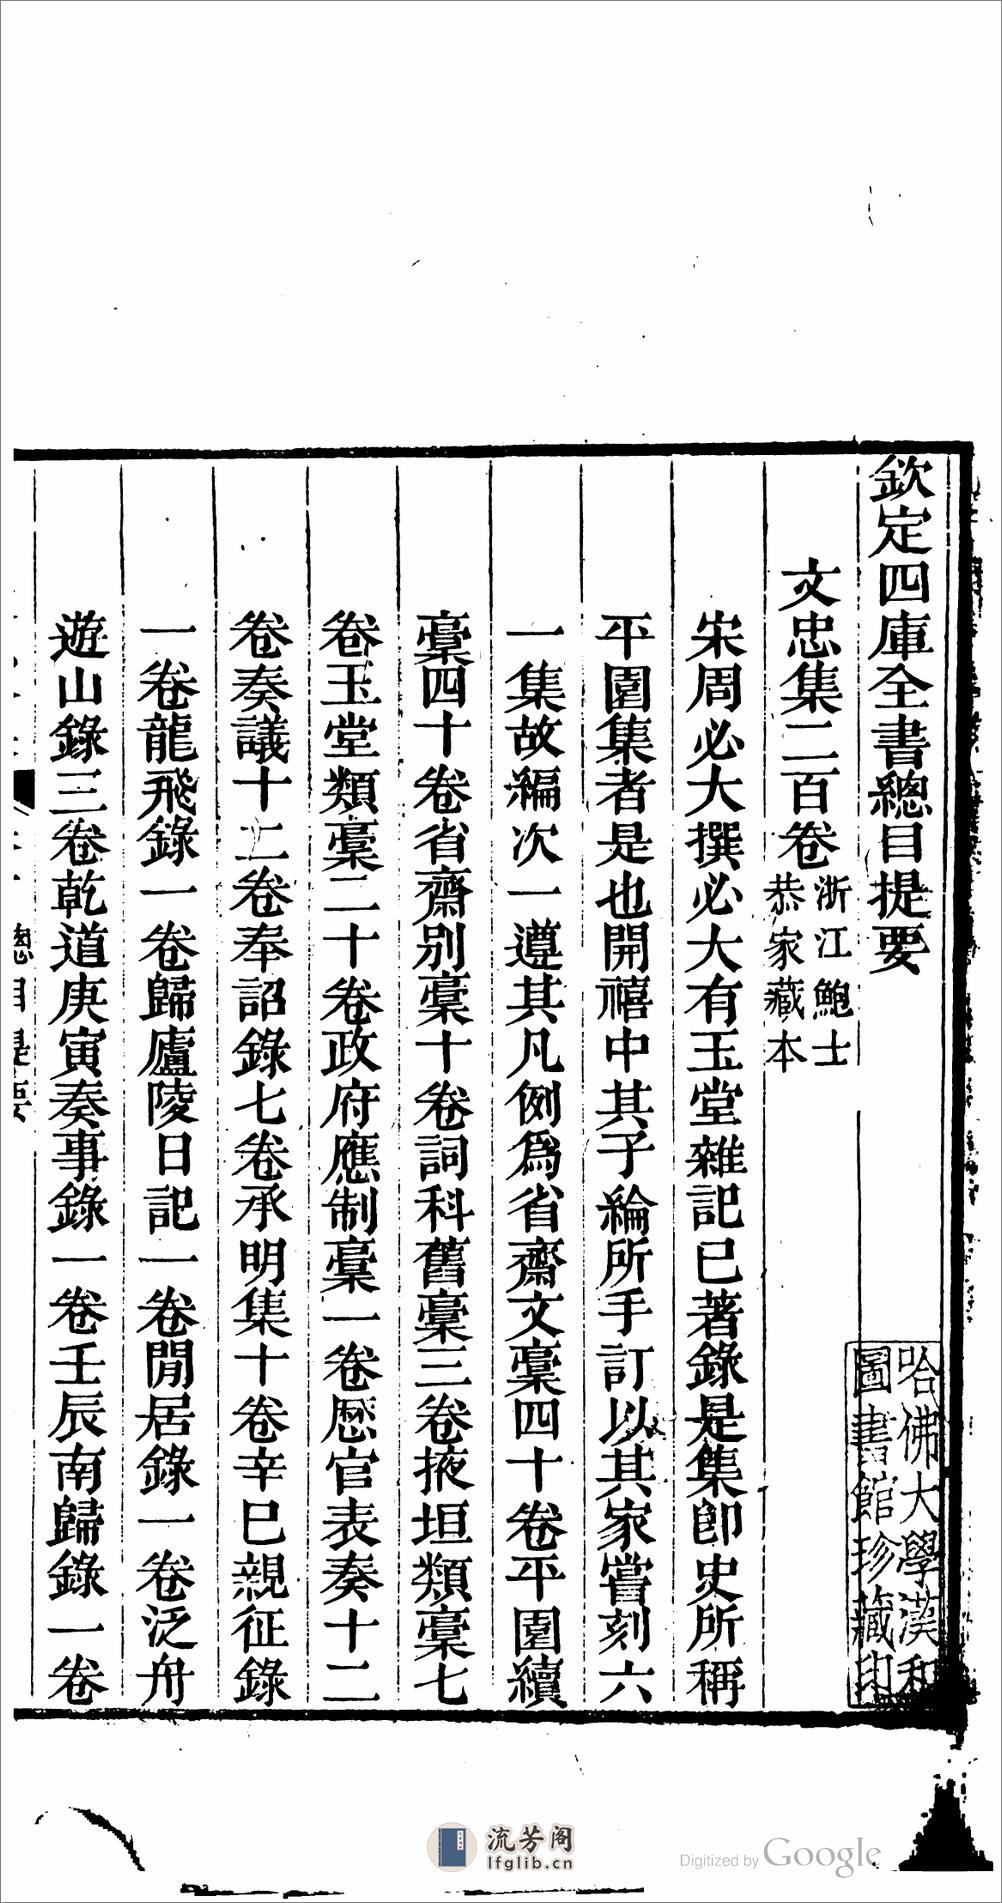 欽定四庫全書總目提要
文忠集二百卷
浙江鮑士
恭家藏本
宋周必大撰必大有玉堂雜記已著錄是集卽史所稱
平園集者是也開禧中其子綸所手訂以其家嘗刻六
一集故編次一遵其凡例爲省齋文稾四十卷平園續
稾四十卷省齋別稾十卷詞科舊稾三卷掖垣類稾七
卷玉堂類稾二十卷政府應制稾一卷歷官表奏十二
卷奏議十二卷奉詔錄七卷承明集十卷辛巳親征錄
一卷龍飛錄一卷歸廬陵日記一卷閒居錄一卷泛舟
遊山錄三卷乾道庚寅奏事錄一卷壬辰南歸錄一卷
總目提要
哈佛大學漢和
圖書館珍藏印
流芳阁
lfglib.cn
Digitized by Google